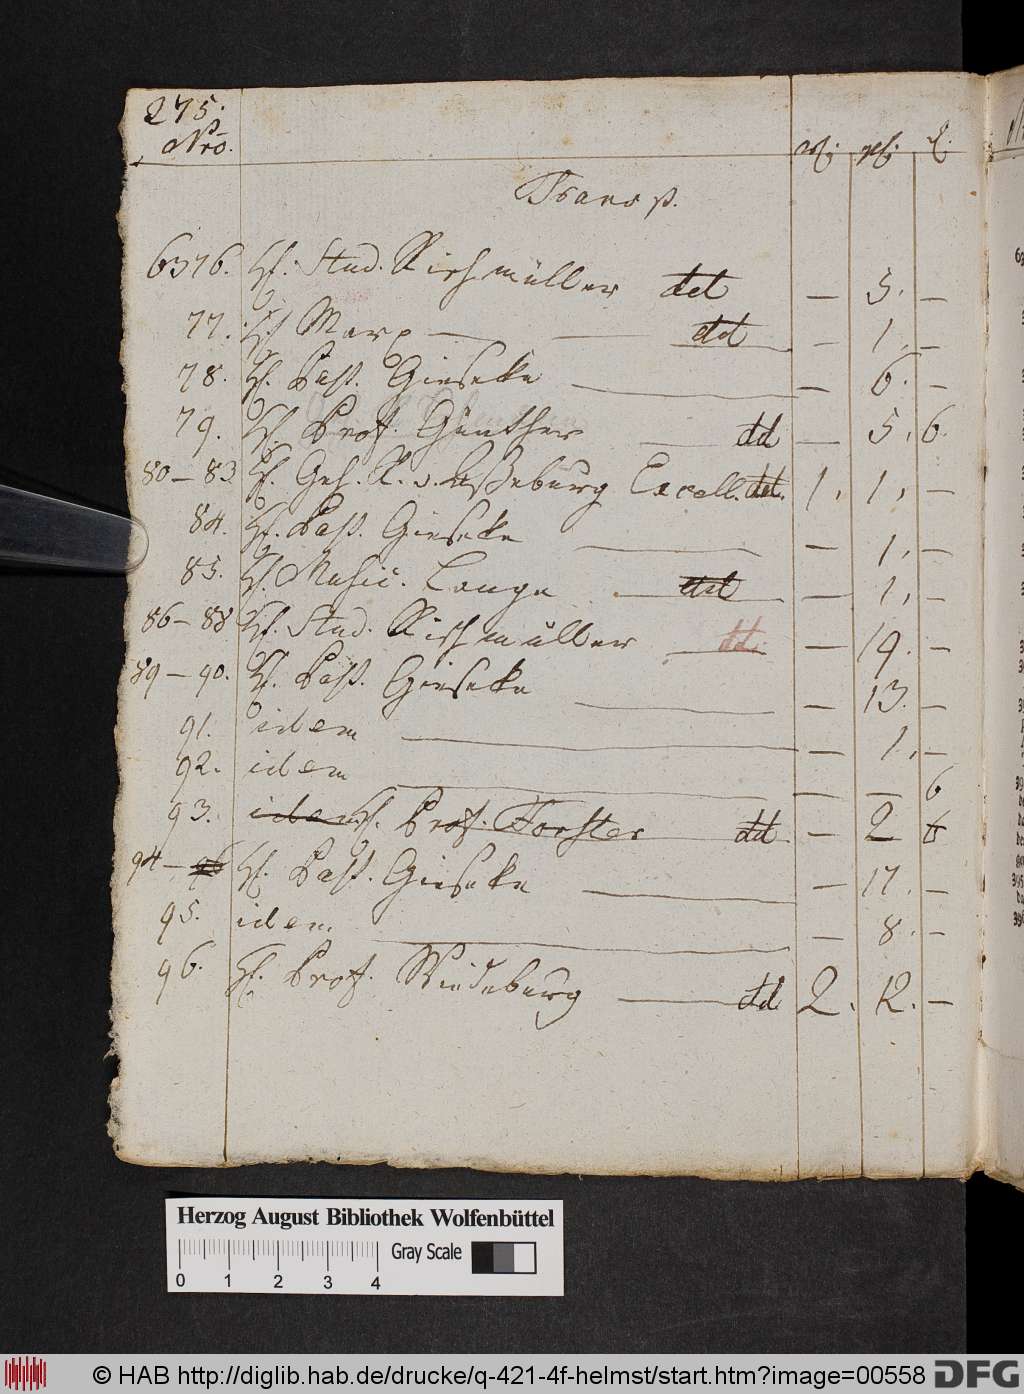 275.
Nro.
Transp.
6376. H. Stud. Kirchmüller dd — 5. —
77. H. Marx — dd — 1. —
78. H. Past. Gieseke — 6. —
79. H. Prof. Günther — dd — 5. 6.
80 – 83. H. Geh. R. v. Aßeburg Excell. dd. 1. 1. —
84. H. Past. Gieseke — 1. —
85. H. Music. Lange dd — 1. —
86 – 88. H. Stud. Kirchmüller dd. — 19. —
89 – 90. H. Past. Gieseke — 13. —
91. idem — 1. —
92. idem — — 6
93. idem H. Prof. Forster dd — 2 6
94 – 96 H. Past. Gieseke — 17. —
95. idem — 8. —
96. H. Prof. Wiedeburg — dd 2. 12. —
Herzog August Bibliothek Wolfenbüttel
Gray Scale
0 1 2 3 4
© HAB http://diglib.hab.de/drucke/q-421-4f-helmst/start.htm?image=00558 DFG